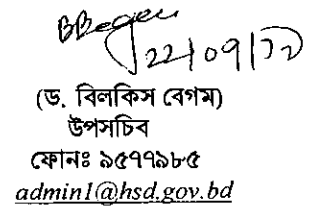 BBegum
22/09/22
(ড. বিলকিস বেগম)
উপসচিব
ফোনঃ ৯৫৭৭৯৮৫
admin1@hsd.gov.bd